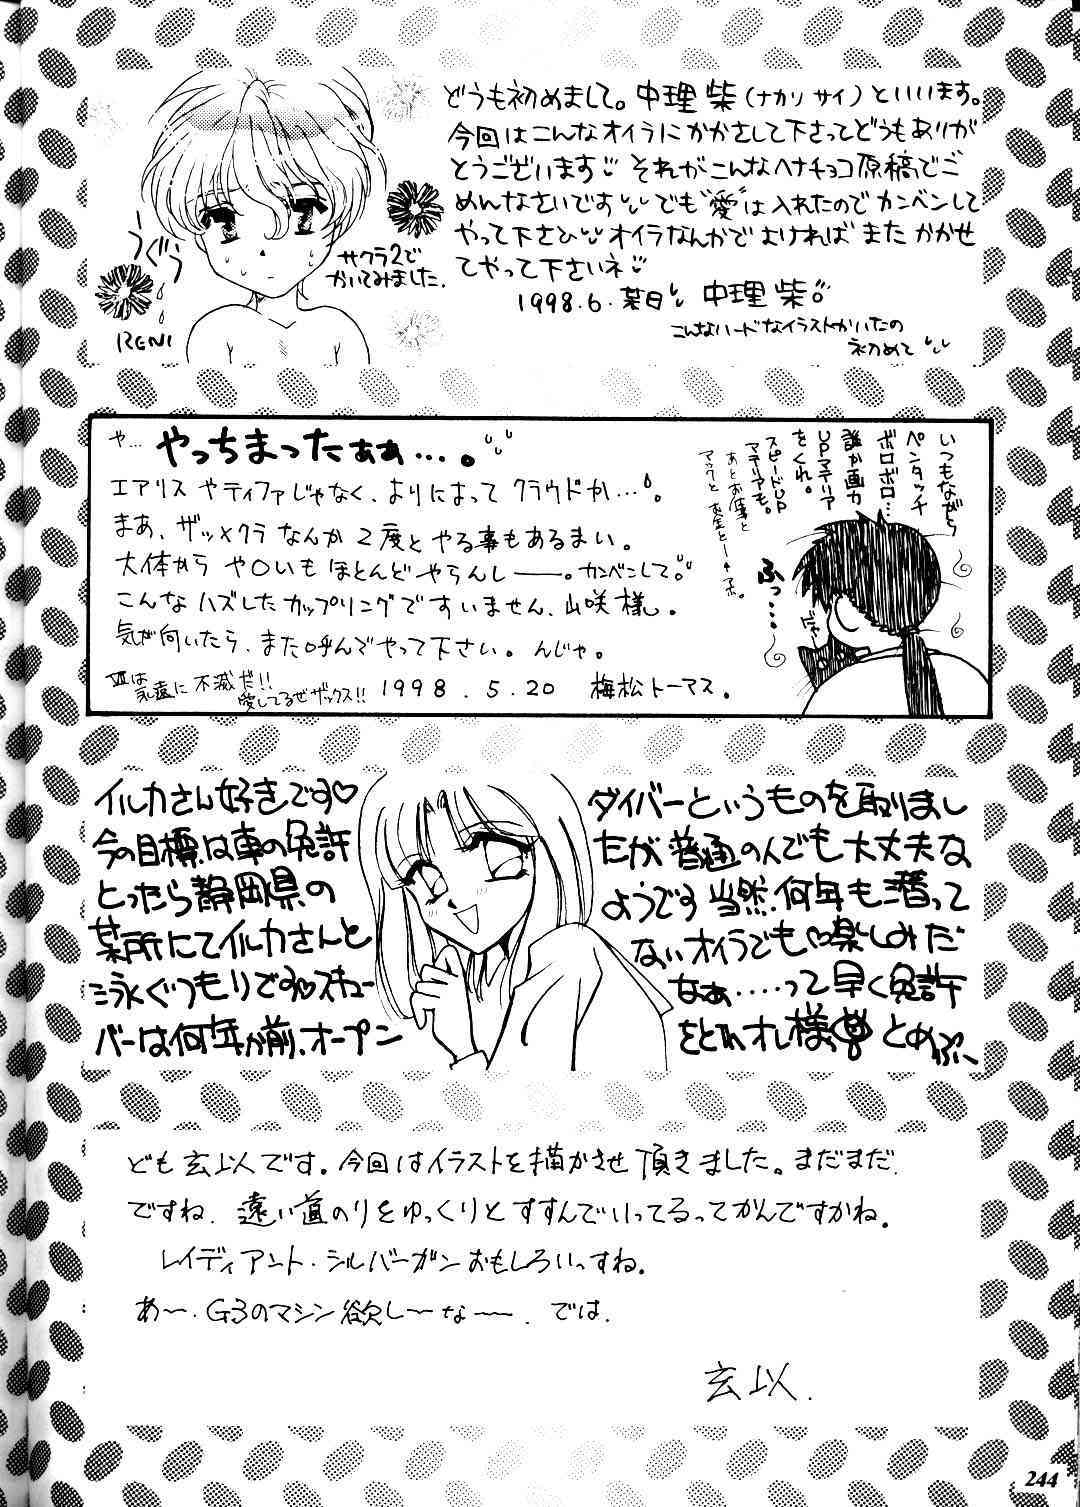 どうも初めまして。中理 柴(ナカリ サイ)といいます。
今回はこんなオイラにかかさして下さってどうもありが
とうございます それがこんなヘナチョコ原稿でご
めんなさいです でも"愛"は入れたのでカンベンして
やって下さひ オイラなんかでよければまたかかせ
てやって下さいネ
1998.6.某日 中理 柴
こんなハードなイラストかいたの
初めて
うぐぅ
サクラ2で
かいてみました.
RENI
や… やっちまったぁぁ…。
エアリスやティファじゃなく、よりによってクラウドか…。
まあ、ザッ×クラなんか2度とやる事もあるまい。
大体からや○いもほとんどやらんしー。カンベンして。
こんなハズしたカップリングですいません、山咲様。
気が向いたら、また呼んでやって下さい。んじゃ。
VIIは
永遠に不滅だ!!
愛してるぜザックス!!
1998.5.20 梅松トーマス。
いつもながら
ペンタッチ
ボロボロ…
誰か画力
UPマテリア
をくれ。
スピードUP
マテリアも。
あとお仕事と
マックとお金とー
ふっ…
イルカさん好きです♡
今の目標は車の免許
とったら静岡県の
某所にてイルカさんと
泳ぐつもりです♡スキュー
バーは何年か前、オープン
ダイバーというものを取りまし
たが普通の人でも大丈夫な
ようです当然、何年も潜って
ないオイラでも♡楽しみだ
なぁ‥‥って早く免許
をとれオレ様っ とめぷー
ども玄以です。今回はイラストを描かせ頂きました。まだまだ
ですね. 遠い道のりをゆっくりとすすんでいってるってかんですかね。
レイディアント・シルバーガンおもしろいっすね。
あ〜. G3のマシン欲し〜な〜. では.
玄以.
244